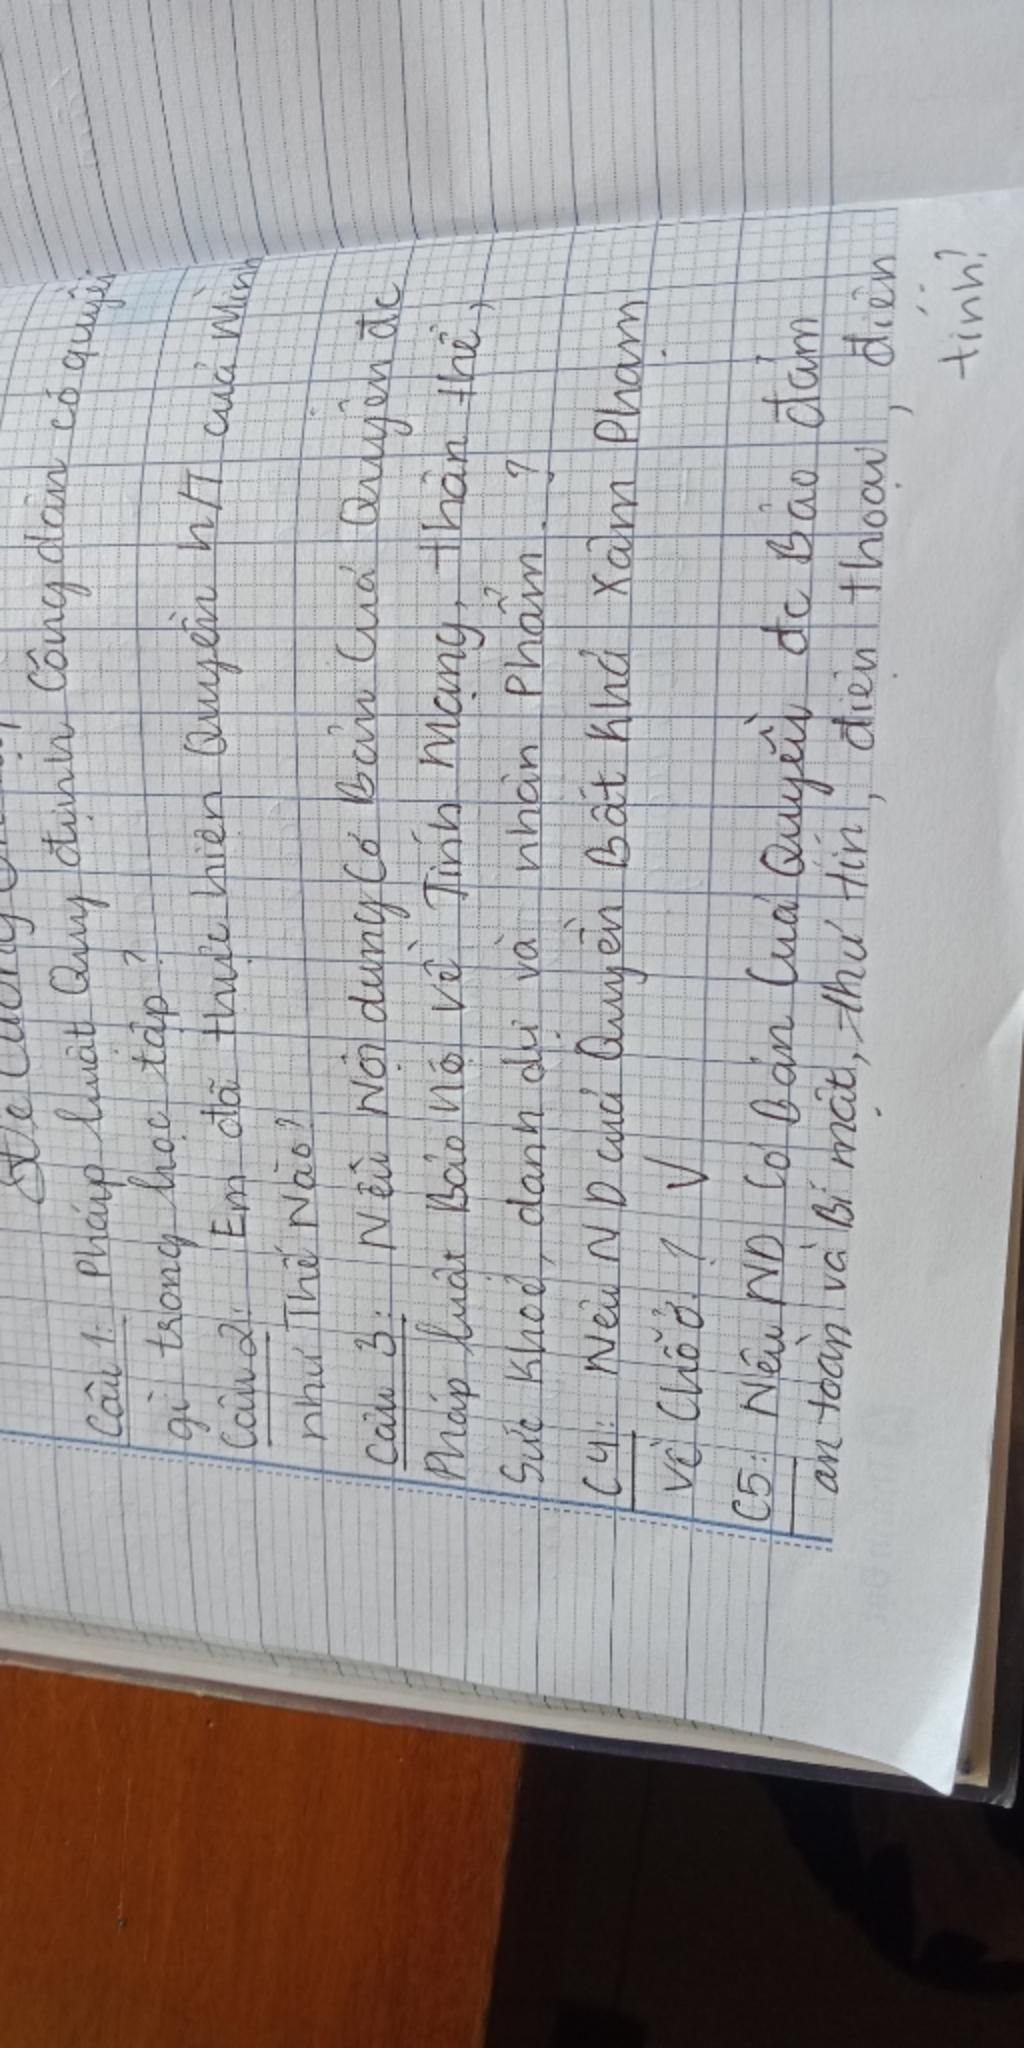 Đề Cương
Câu 1: Pháp luật Quy định Công dân có quyền
gì trong học tập?
Câu 2: Em đã thực hiện Quyền h/T của Mình
như Thế Nào?
Câu 3: Nêu Nội dung Cơ Bản Của Quyền đc
Pháp luật Bảo hộ về Tính mạng, thân thể,
Sức khoẻ, danh dự và nhân Phẩm?
C4: Nêu ND của Quyền Bất khả xâm Phạm
về Chỗ ở? V
C5: Nêu ND Cơ Bản Của Quyền đc Bảo đảm
an toàn và Bí mật, thư tín, điện thoại, điện
tính?